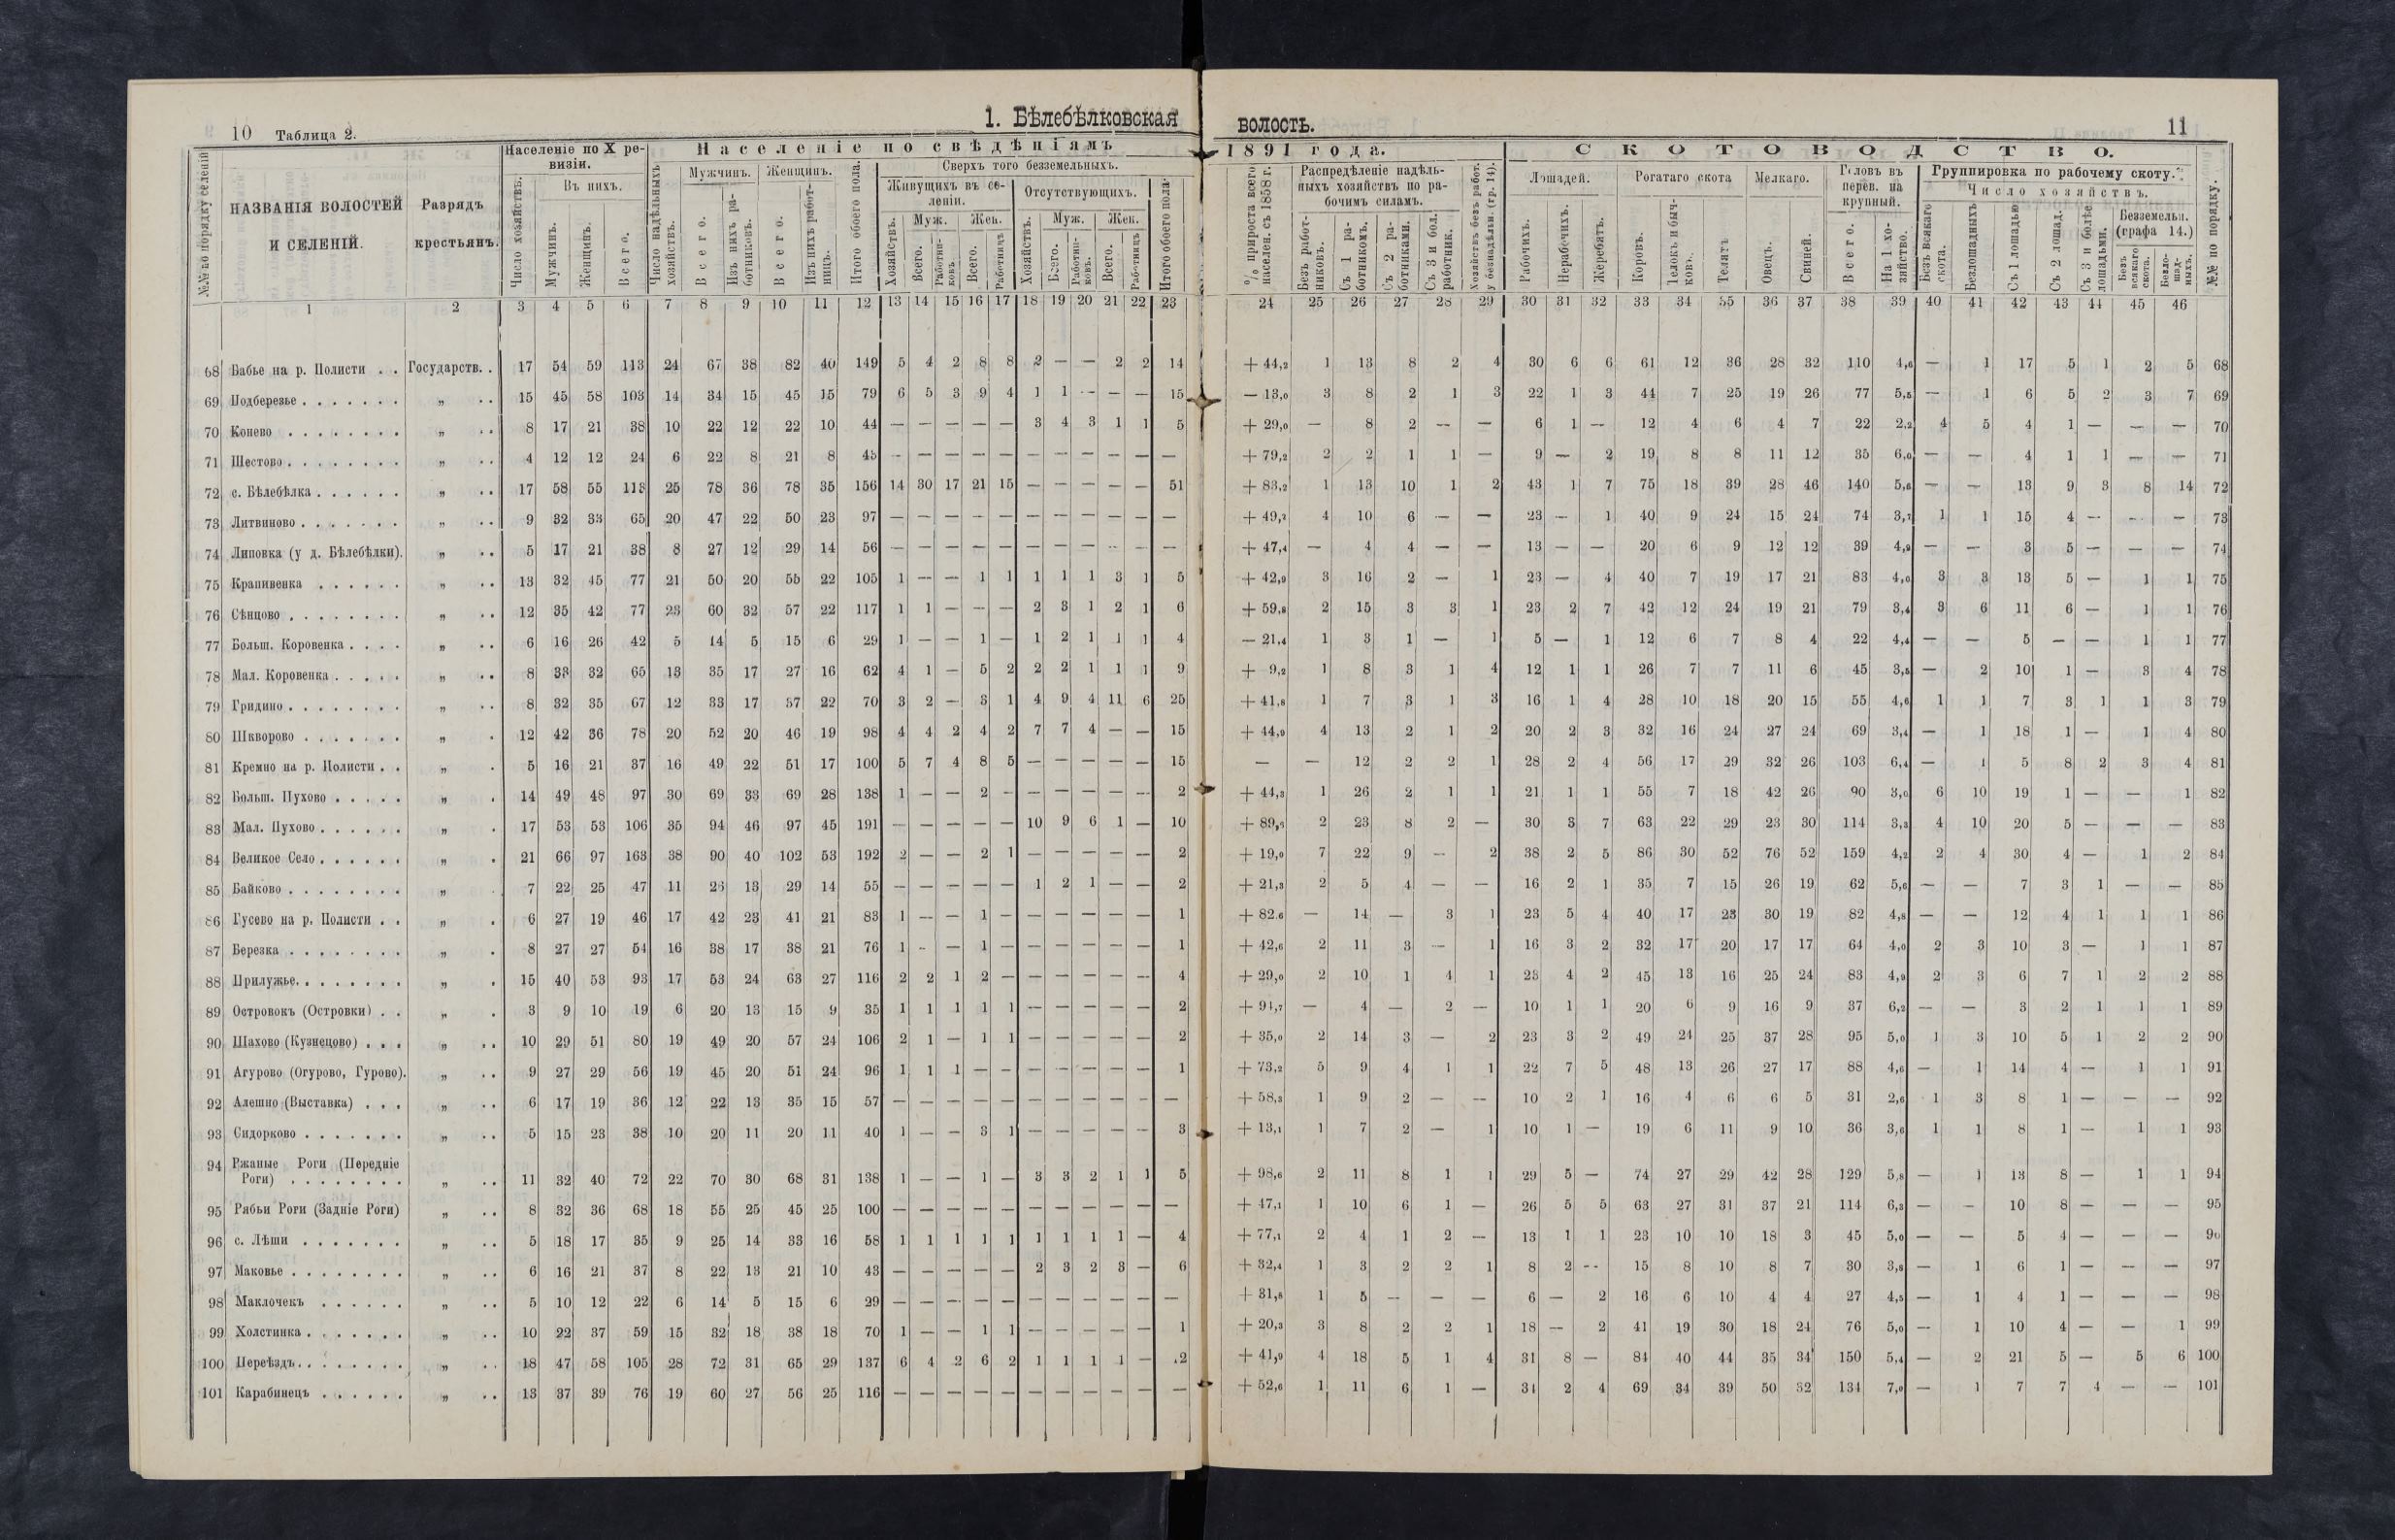 10 Таблица 2.
1. Бѣлебѣлковская
волость.
11
№№ по порядку селеній
НАЗВАНІЯ ВОЛОСТЕЙ И СЕЛЕНІЙ.
Разрядъ крестьянъ.
Населеніе по X ревизіи.
Число хозяйствъ.
Въ нихъ.
Мужчинъ.
Женщинъ.
Всего.
Населеніе по свѣдѣніямъ
1891 года.
Число надѣльныхъ хозяйствъ.
Мужчинъ.
Всего.
Изъ нихъ работниковъ.
Женщинъ.
Всего.
Изъ нихъ работницъ.
Итого обоего пола.
Сверхъ того безземельныхъ.
Живущихъ въ селеніи.
Хозяйствъ.
Муж.
Всего.
Работниковъ.
Жен.
Всего.
Работницъ
Отсутствующихъ.
Хозяйствъ.
Муж.
Всего.
Работниковъ.
Жен.
Всего.
Работницъ
Итого обоего пола
% прироста всего населен. съ 1858 г.
Распредѣленіе надѣльныхъ хозяйствъ по рабочимъ силамъ.
Безъ работниковъ.
Съ 1 работникомъ.
Съ 2 работниками.
Съ 3 и бол. работник.
Хозяйствъ безъ работ. у безнадѣльн. (гр. 14).
СКОТОВОДСТВО.
Лошадей.
Рабочихъ.
Нерабочихъ.
Жеребятъ.
Рогатаго скота
Коровъ.
Телокъ и бычковъ.
Телятъ
Мелкаго.
Овецъ.
Свиней.
Головъ въ перев. на крупный.
Всего.
На 1 хозяйство.
Группировка по рабочему скоту.
Число хозяйствъ.
Безъ всякаго скота.
Безлошадныхъ
Съ 1 лошадью
Съ 2 лошад.
Съ 3 и болѣе лошадьми.
Безземельн. (графа 14.)
Безъ всякаго скота.
Безлошадныхъ.
№№ по порядку.
1 2 3 4 5 6 7 8 9 10 11 12 13 14 15 16 17 18 19 20 21 22 23 24 25 26 27 28 29 30 31 32 33 34 35 36 37 38 39 40 41 42 43 44 45 46
68 Бабье на р. Полисти . . Государств. . 17 54 59 113 24 67 38 82 40 149 5 4 2 8 8 2 — — 2 2 14 + 44,2 1 13 8 2 4 30 6 6 61 12 36 28 32 110 4,6 — 1 17 5 1 2 5 68
69 Подберезье . . . „ . . 15 45 58 103 14 34 15 45 15 79 6 5 3 9 4 1 1 — — — 15 — 13,0 3 8 2 1 3 22 1 3 44 7 25 19 26 77 5,5 — 1 6 5 2 3 7 69
70 Конево . . . „ . . 8 17 21 38 10 22 12 22 10 44 — — — — — 3 4 3 1 1 5 + 29,0 — 8 2 — — 6 1 — 12 4 6 4 7 22 2,2 4 5 4 1 — — — 70
71 Шестово . . . „ . . 4 12 12 24 6 22 8 21 8 43 — — — — — — — — — — — + 79,2 2 2 1 1 — 9 — 2 19 8 8 11 12 35 6,0 — — 4 1 1 — — 71
72 с. Бѣлебѣлка . . . „ . . 17 58 55 113 25 78 36 78 35 156 14 30 17 21 15 — — — — — 51 + 83,2 1 13 10 1 2 43 1 7 75 18 39 28 46 140 5,6 — — 13 9 3 8 14 72
73 Литвиново . . . „ . . 9 32 33 65 20 47 22 50 23 97 — — — — — — — — — — — + 49,2 4 10 6 — — 23 — 1 40 9 24 15 24 74 3,7 1 1 15 4 — — — 73
74 Липовка (у д. Бѣлебѣлки). „ . . 5 17 21 38 8 27 12 29 14 56 — — — — — — — — — — — + 47,4 — 4 4 — — 13 — — 20 6 9 12 12 39 4,9 — — 3 5 — — — 74
75 Крапивенка . . . „ . . 13 32 45 77 21 50 20 55 22 105 1 — — 1 1 1 1 1 3 1 5 + 42,9 3 16 2 — 1 23 — 4 40 7 19 17 21 83 4,0 3 3 13 5 — 1 1 75
76 Сѣнцово . . . „ . . 12 35 42 77 23 60 32 57 22 117 1 1 — — — 2 3 1 2 1 6 + 59,8 2 15 3 3 1 23 2 7 42 12 24 19 21 79 3,4 3 6 11 6 — 1 1 76
77 Больш. Коровенка . . . „ . . 6 16 26 42 5 14 5 15 6 29 1 — — 1 — 1 2 1 1 1 4 — 21,4 1 3 1 — 1 5 — 1 12 6 7 8 4 22 4,4 — — 5 — — 1 1 77
78 Мал. Коровенка . . . „ . . 8 33 32 65 13 35 17 27 16 62 4 1 — 5 2 2 2 1 1 1 9 + 9,2 1 8 3 1 4 12 1 1 26 7 7 11 6 45 3,5 — 2 10 1 — 3 4 78
79 Гридино . . . „ . . 8 32 35 67 12 33 17 37 22 70 3 2 — 3 1 4 9 4 11 6 25 + 41,8 1 7 3 1 3 16 1 4 28 10 18 20 15 55 4,6 1 1 7 3 1 1 3 79
80 Шкворово . . . „ . 12 42 36 78 20 52 20 46 19 98 4 4 2 4 2 7 7 4 — — 15 + 44,9 4 13 2 1 2 20 2 3 32 16 24 27 24 69 3,4 — 1 18 1 — 1 4 80
81 Кремно на р. Полисти . . „ . 5 16 21 37 16 49 22 51 17 100 5 7 4 8 5 — — — — — 15 — — 12 2 2 1 28 2 4 56 17 29 32 26 103 6,4 — 1 5 8 2 3 4 81
82 Больш. Пухово . . . „ . 14 49 48 97 30 69 33 69 28 138 1 — — 2 — — — — — — 2 + 44,3 1 26 2 1 1 21 1 1 55 7 18 42 26 90 3,0 6 10 19 1 — — 1 82
83 Мал. Пухово . . . „ . 17 53 53 106 35 94 46 97 45 191 — — — — — 10 9 6 1 — 10 + 89,6 2 23 8 2 — 30 3 7 63 22 29 23 30 114 3,3 4 10 20 5 — — — 83
84 Великое Село . . . „ . 21 66 97 163 38 90 40 102 53 192 2 — — 2 1 — — — — — 2 + 19,0 7 22 9 — 2 38 2 5 86 30 52 76 52 159 4,2 2 4 30 4 — 1 2 84
85 Байково . . . „ . 7 22 25 47 11 26 13 29 14 55 — — — — — 1 2 1 — — 2 + 21,3 2 5 4 — — 16 2 1 35 7 15 26 19 62 5,6 — — 7 3 1 — — 85
86 Гусево на р. Полисти . . „ . 6 27 19 46 17 42 23 41 21 83 1 — — 1 — — — — — — 1 + 82.6 — 14 — 3 1 23 5 4 40 17 23 30 19 82 4,8 — — 12 4 1 1 1 86
87 Березка . . . „ . 8 27 27 54 16 38 17 38 21 76 1 — — 1 — — — — — — 1 + 42,6 2 11 3 — 1 16 3 2 32 17 20 17 17 64 4,0 2 3 10 3 — 1 1 87
88 Прилужье . . . „ . 15 40 53 93 17 53 24 63 27 116 2 2 1 2 — — — — — — 4 + 29,0 2 10 1 4 1 23 4 2 45 13 16 25 24 83 4,9 2 3 6 7 1 2 2 88
89 Островокъ (Островки) . . „ . 3 9 10 19 6 20 13 15 9 35 1 1 1 1 1 — — — — — 2 + 94,7 — 4 — 2 — 10 1 1 20 6 9 16 9 37 6,2 — — 3 2 1 1 1 89
90 Шахово (Кузнецово) . . . „ . . 10 29 51 80 19 49 20 57 24 106 2 1 — 1 1 — — — — — 2 + 35,0 2 14 3 — 2 23 3 2 49 24 25 37 28 95 5,0 1 3 10 5 1 2 2 90
91 Агурово (Огурово, Гурово). „ . . 9 27 29 56 19 45 20 51 24 96 1 1 1 — — — — — — — 1 + 73,2 5 9 4 1 1 22 7 5 48 13 26 27 17 88 4,6 — 1 14 4 — 1 1 91
92 Алешно (Выставка) . . . „ . . 6 17 19 36 12 22 13 35 15 57 — — — — — — — — — — — + 58,3 1 9 2 — — 10 2 1 16 4 6 6 5 31 2,6 1 3 8 1 — — — 92
93 Сидорково . . . „ . . 5 15 23 38 10 20 11 20 11 40 1 — — 3 1 — — — — — 3 + 13,1 1 7 2 — 1 10 1 — 19 6 11 9 10 36 3,6 1 1 8 1 — 1 1 93
94 Ржаные Роги (Передніе
Роги) . . . „ . . 11 32 40 72 22 70 30 68 31 138 1 — — 1 — 3 3 2 1 1 5 + 98,6 2 11 8 1 1 29 5 — 74 27 29 42 28 129 5,8 — 1 13 8 — 1 1 94
95 Рябьи Роги (Задніе Роги) „ . . 8 32 36 68 18 55 25 45 25 100 — — — — — — — — — — — + 47,1 1 10 6 1 — 26 5 5 63 27 31 37 21 114 6,3 — — 10 8 — — — 95
96 с. Лѣши . . . „ . . 5 18 17 35 9 25 14 33 16 58 1 1 1 1 1 1 1 1 1 — 4 + 77,1 2 4 1 2 — 13 1 1 23 10 10 18 3 45 5,0 — — 5 4 — — — 96
97 Маковье . . . „ . . 6 16 21 37 8 22 13 21 10 43 — — — — — 2 3 2 3 — 6 + 32,4 1 3 2 2 1 8 2 — 15 8 10 8 7 30 3,8 — 1 6 1 — — — 97
98 Маклочекъ . . . „ . . 5 10 12 22 6 14 5 15 6 29 — — — — — — — — — — — + 31,8 1 5 — — — 6 — 2 16 6 10 4 4 27 4,5 — 1 4 1 — — — 98
99 Холстинка . . . „ . . 10 22 37 59 15 32 18 38 18 70 1 — — 1 1 — — — — — 1 + 20,3 3 8 2 2 1 18 — 2 41 19 30 18 24 76 5,0 — 1 10 4 — — 1 99
100 Переѣздъ . . . „ . . 18 47 58 105 28 72 31 65 29 137 6 4 2 6 2 1 1 1 1 — 12 + 41,9 4 18 5 1 4 31 8 — 84 40 44 35 34 150 5,4 — 2 21 5 — 5 6 100
101 Карабинецъ . . . „ . . 13 37 39 76 19 60 27 56 25 116 — — — — — — — — — — — + 52,6 1 11 6 1 — 31 2 4 69 34 39 50 32 134 7,0 — 1 7 7 4 — — 101